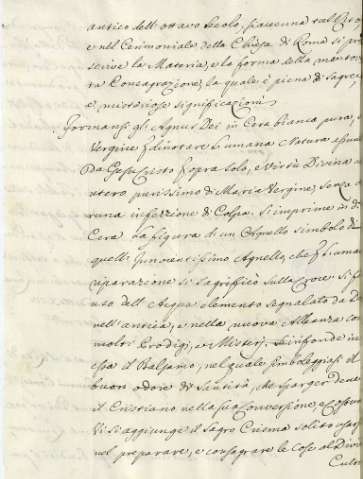 antico dell'ottavo Secolo,
e nel Cerimoniale della Chiesa di Roma si pre
scrive la Materia, e la forma della
ra Consagrazione, la quale è piena di sagre,
e misteriose significazioni.
Formansi gli Agnus Dei in Cera bianca pura, e
Vergine p dinotare l'umana Natura assun
Da Gesù Cristo p opra solo, e Virtù Divina
utero purissimo di Maria Vergine, senza
runa infezione di Colpa. Si imprime in d
Cera la figura di un Agnello simbolo di
quell' Innocentissimo Agnello, che p l'umana
riparazione si sagrificò sulla Croce. Si fà
uso dell' Acqua elemento segnalato da D
nell' antica, e nella nuova Alleanza con
molti Prodigj, e Misterj. S'infonde in
essa il Balsamo, nel quale simboleggiasi il
buon odore di Santità, che sparger deve
il Cristiano nella sua Conversione, e Costu
Vi si aggiunge il Sagro Crisma solito
nel preparare, e consagrare le Cose al Divin
Culto